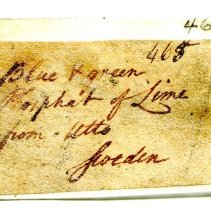 46
465
Blue & green
Phosphat of Lime
from Utto
Sweden